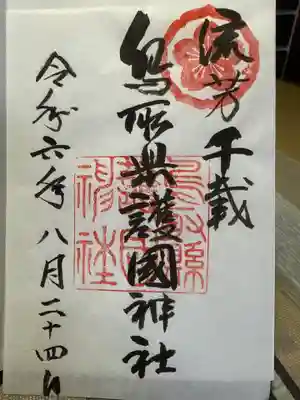 流芳千載
鳥取県護國神社
令和六年八月二十四日
鳥取縣護國神社